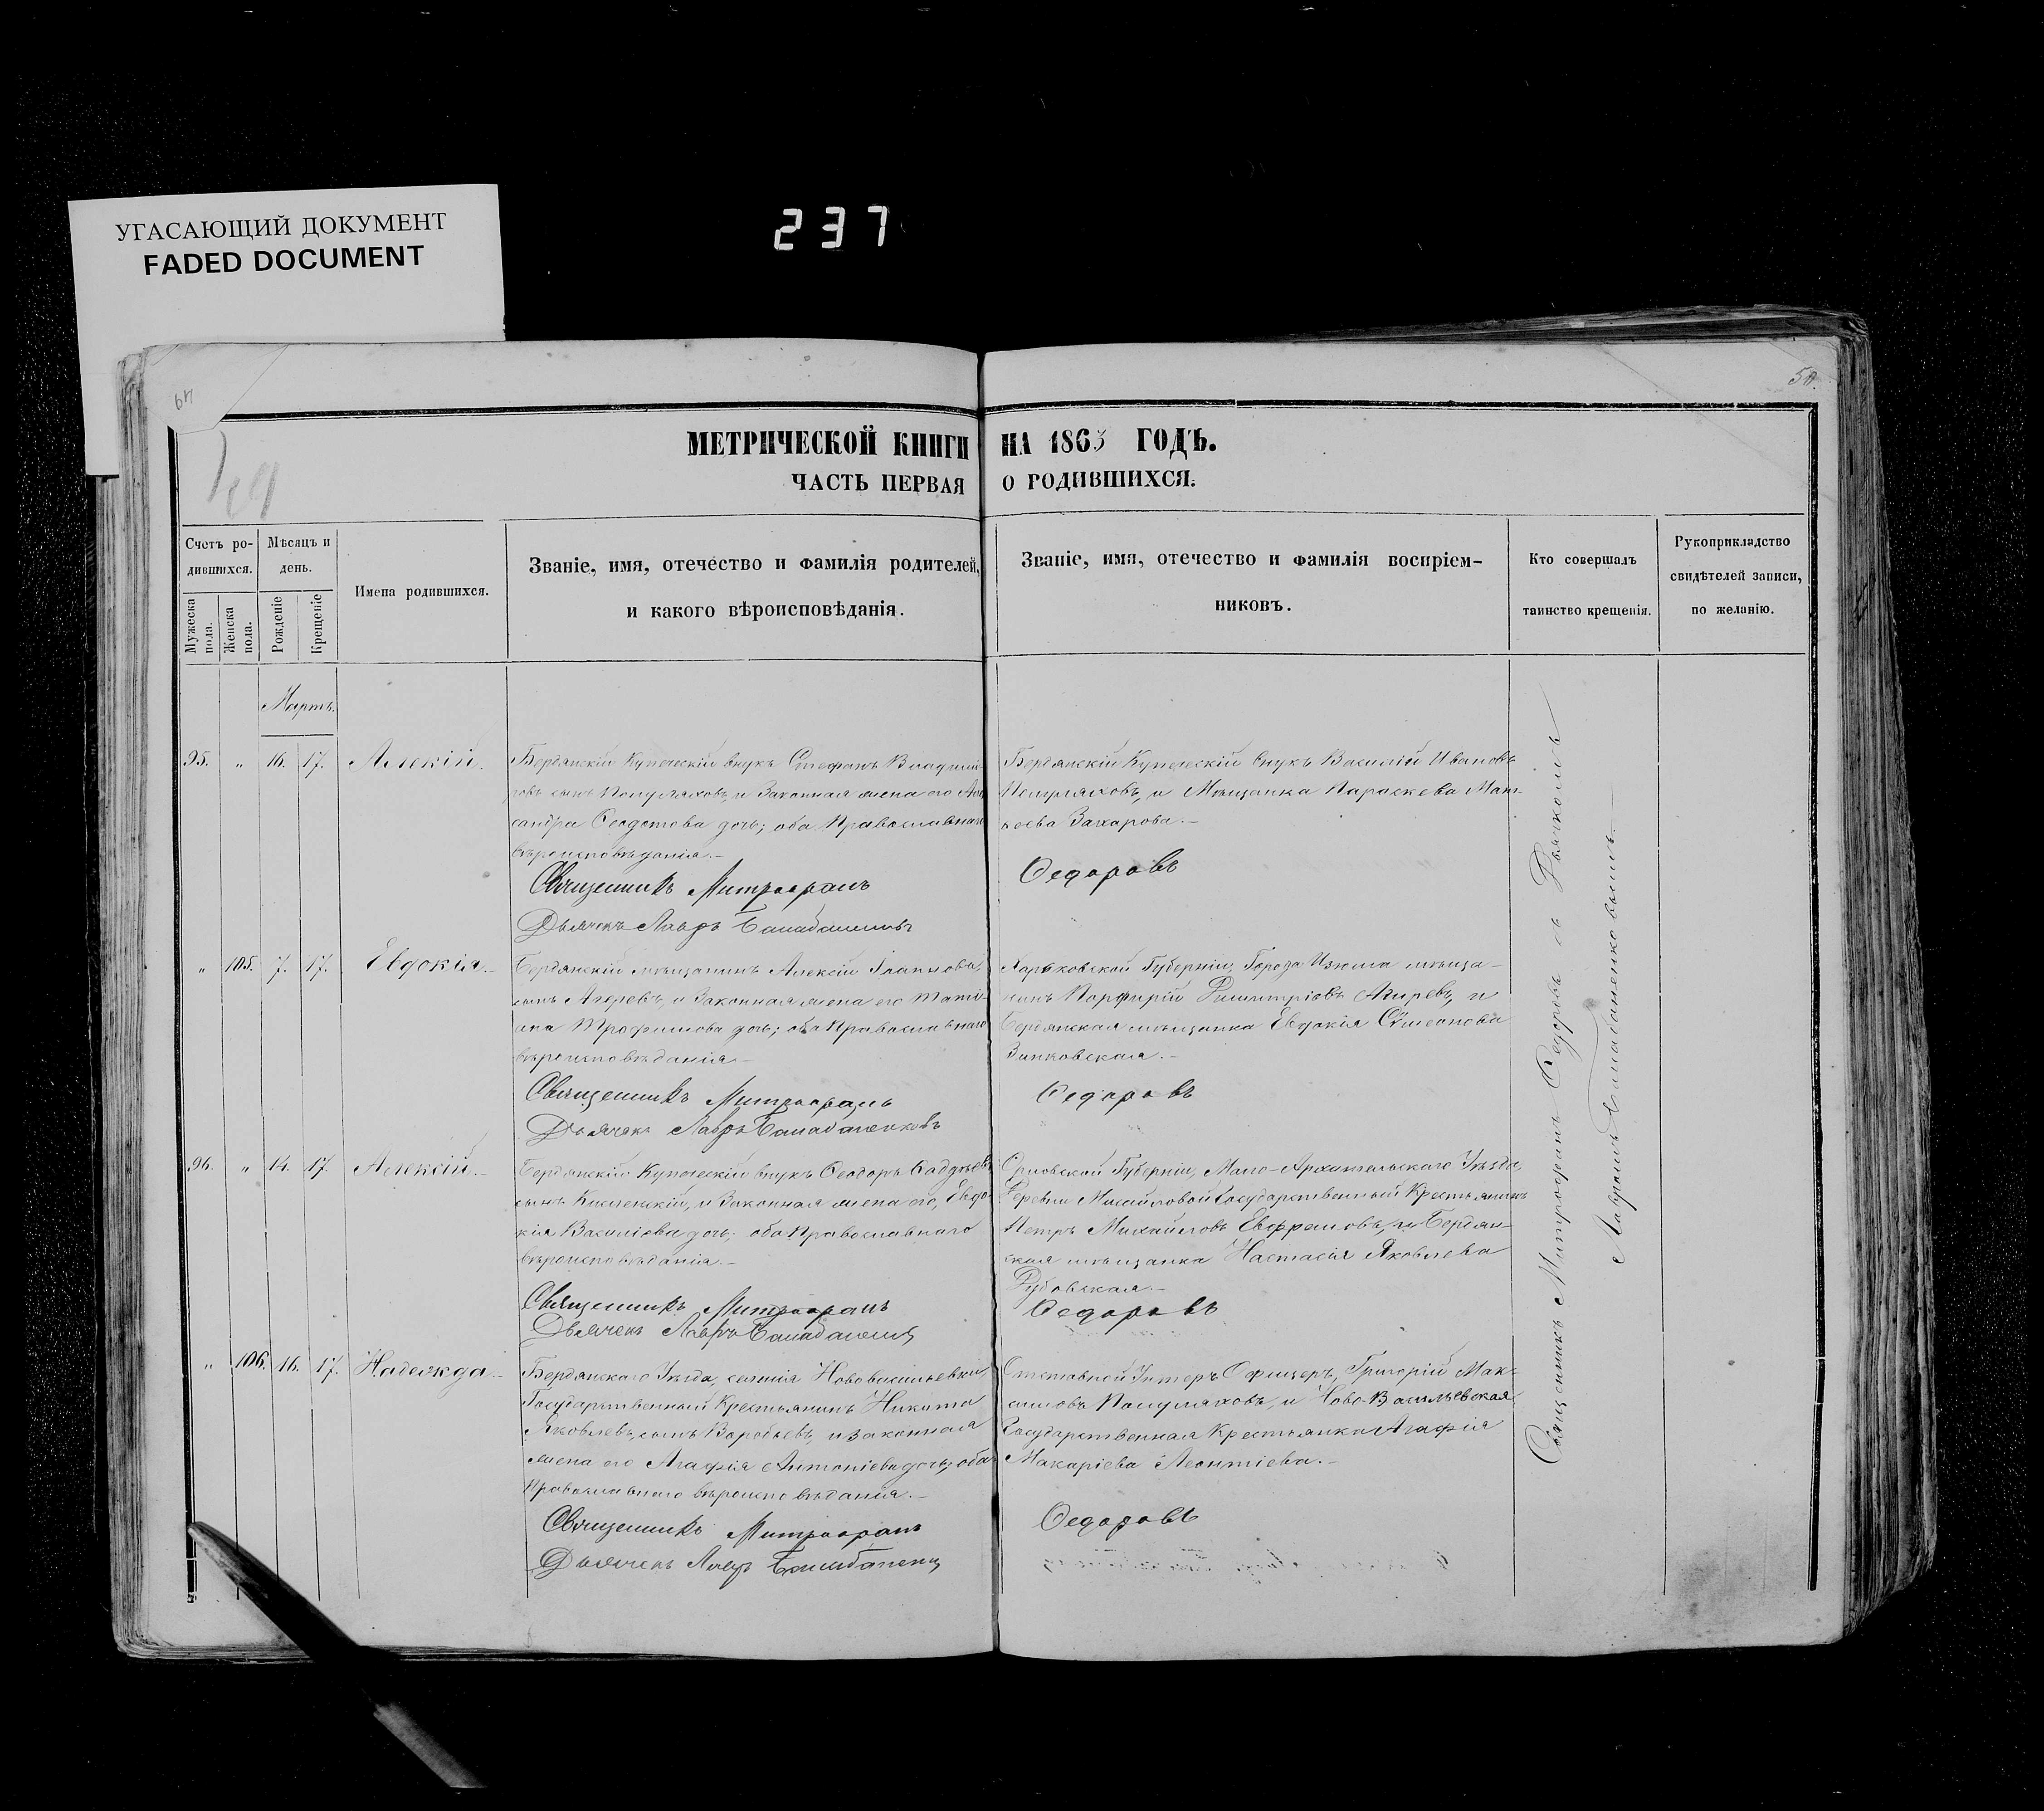 УГАСАЮЩИЙ ДОКУМЕНТ
FADED DOCUMENT
237
49
50.
МЕТРИЧЕСКОЙ КНИГИ НА 1863 ГОДЪ.
ЧАСТЬ ПЕРВАЯ О РОДИВШИХСЯ.
Счетъ ро-
дившихся.
Мужеска
пола.
Женска
пола.
Мѣсяцъ и
день.
Рожденіе
Крещеніе
Имена родившихся.
Званіе, имя, отечество и фамилія родителей,
и какого вѣроисповѣданія.
Званіе, имя, отечество и фамилія воспріем-
никовъ.
Кто совершалъ
таинство крещенія.
Рукоприкладство
свидѣтелей записи,
по желанію.
Мартъ.
95. „ 16. 17. Алексій.
Бердянскій Купеческій внукъ Стефанъ Владими-
ровъ сынъ Полуляховъ, и Законная жена его Алек
сандра Ѳеодотова дочь; оба Православнаго
вѣроисповѣданія.-
Бердянскій Купеческій внукъ Василій Ивановъ
Полуляховъ, и Мѣщанка Параскева Мат-
ѳеева Захарова.-
Священникъ Митрофанъ Ѳедоровъ
Дьячекъ Лавръ
„ 105. 7. 17. Евдокія.-
Бердянскій мѣщанинъ Алексій Іоанновъ
сынъ и Законная жена его Таті-
ана Трофимова дочь; оба Православнаго
вѣроисповѣданія.-
Харьковской Губерніи, Города Изюма мѣща-
нинъ Порфирій Димитріовъ и
Бердянская мѣщанка Евдокія Сѵмеонова
Зинковская.-
Священникъ Митрофанъ Ѳедоровъ
Дьячекъ Лавръ
96. „ 14. 17. Алексій.-
Бердянскій Купеческій внукъ Ѳеодоръ Ѳаддѣевъ
сынъ и Законная жена его, Евдо-
кія Василіева дочь; оба Православнаго
вѣроисповѣданія.-
Орловской Губерніи, Мало-Архангельскаго Уѣзда,
Деревни Михайловой Государственный Крестьянинъ
Петръ Михайловъ Евфремовъ, и Бердян-
ская мѣщанка Настасія Яковлева
Священникъ Митрофанъ Ѳедоровъ
Дьячекъ Лавръ
„ 106. 16. 17. Надежда.-
Бердянскаго Уѣзда, селенія Нововасильевки,
Государственный Крестьянинъ Никита
Яковлевъ, сынъ Воробьевъ, и законная
жена его Агафія Антоніева дочь; оба
Православнаго вѣроисповѣданія.-
Отставной Унтеръ Офицеръ, Григорій Мак-
симовъ Полуляховъ, и Ново-Васильевская
Государственная Крестьянка Агафія
Макаріева Леонтіева.-
Священникъ Митрофанъ Ѳедоровъ
Дьячекъ Лавръ
Священникъ Митрофанъ Ѳедоровъ съ Дьячкомъ
Лавромъ Балабаненковымъ.